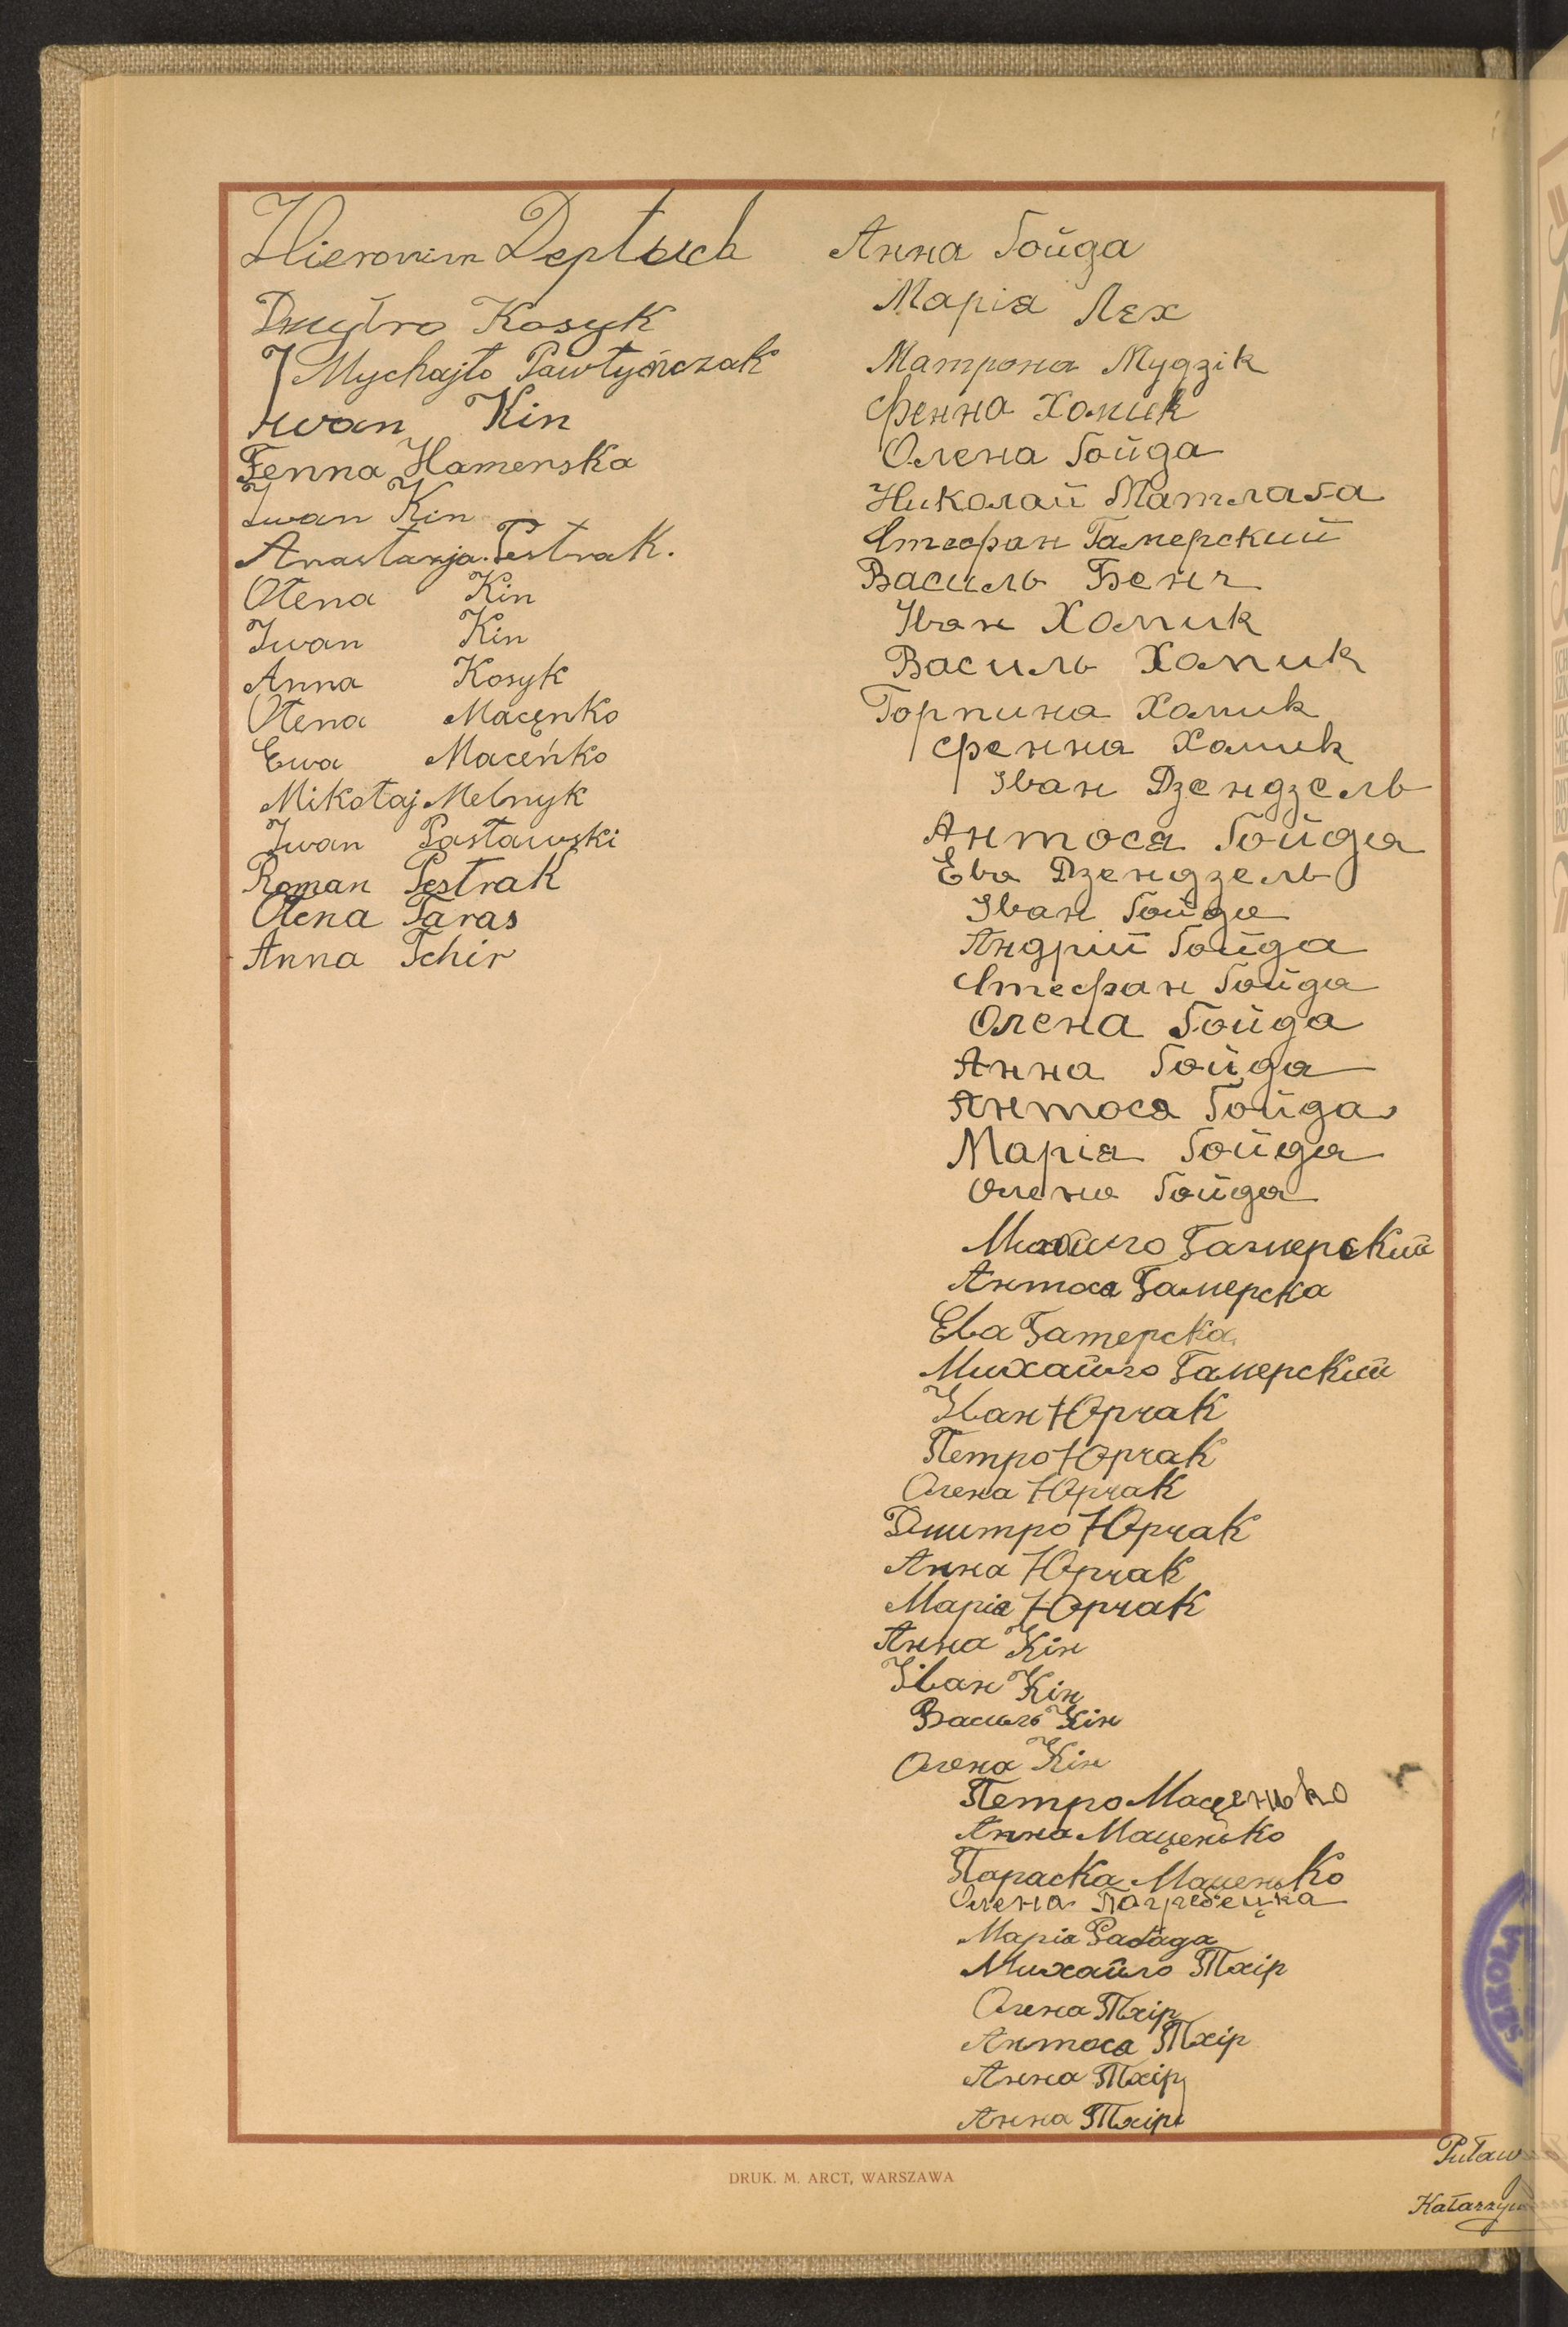 Hieronim Deptuch
Dmytro Kosyk
Mychajło Pawłyńczak
Iwan Kin
Fenna Hamerska
Iwan Kin
Anastazja Pestrak.
Ołena Kin
Iwan Kin
Anna Kosyk
Ołena Macęnko
Ewa Maceńko
Mikołaj Melnyk
Iwan Pastawski
Roman Pestrak
Olena Taras
Anna Tchir
Анна Гойда
Марія Лех
Матрона Мудзік
Фенна Хомик
Олена Гойда
Николай Матлаґа
Стефан Гамерский
Василь Бенч
Іван Хомик
Василь Хомик
Горпина Хомик
Фенна Хомик
Іван Дзендзель
Антося Гойда
Ева Дзендзель
Іван Гойда
Андрій Гойда
Стефан Гойда
Олена Гойда
Анна Гойда
Антося Гойда
Марія Гойда
Олена Гойда
Михайло Гамерский
Антося Гамерска
Ева Гамерска
Михайло Гамерский
Іван Юрчак
Петро Юрчак
Олена Юрчак
Дмитро Юрчак
Анна Юрчак
Марія Юрчак
Анна Кін
Іван Кін
Василь Кін
Олена Кін
Петро Маценько
Анна Маценько
Параска Маценько
Олена
Марія
Михайло Тхір
Олена Тхір
Антося Тхір
Анна Тхір
Анна Тхір
DRUK. M. ARCT, WARSZAWA
SZKOŁA